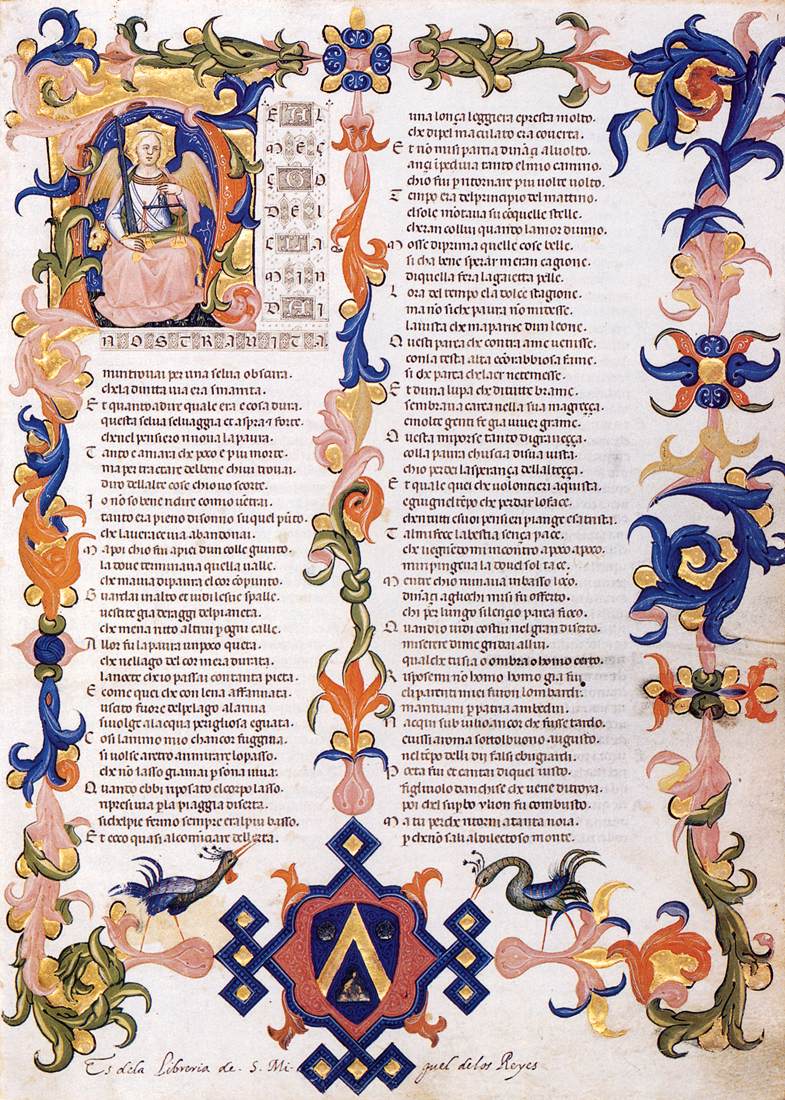 N EL
MEÇ
ÇO
DEL
CA
MIN
DI
NOSTRA VITA
mi ritrouai per una selua obscura.
che la diritta uia era smarrita.
Et quanto a dire quale era e cosa dura.
questa selua seluaggia et aspra et forte.
che nel pensiero rinoua la paura.
Tanto e amara che poco e piu morte.
ma per tractare del bene chiui trouai.
diro dellalte cose chio uo scorte.
Io nõ so bene ridire comio uẽtrai.
tanto era pieno di sonno su quel pũto.
che la uerace uia abandonai.
Ma poi chio fui apie dun colle giunto.
la doue terminaua quella ualle.
che mauia di paura el cor cõpunto.
Guardai in alto et uidi le sue spalle.
uestite gia de raggi del pianeta.
che mena ritto altrui p ogni calle.
Allor fu la paura un poco queta.
che nellago del cor mera durata.
la nocte chio passai con tanta pieta.
E come quei che con lena affannata.
uscito fuore del pelago alariua
si uolge alacqua perigliosa e guata.
Cosi lanimo mio chancor fuggiua.
si uolse aretro a mirare lo passo.
che nõ lasso giamai psona uiua.
Quanto ebbi riposato el corpo lasso.
ripresi uia p la piaggia diserta.
si chel pie fermo sempre era l piu basso.
Et ecco quasi al comĩciare dellerta.
una lonça leggiera e presta molto.
che di pel maculato era couerta.
Et nõ mi si partia dinãçi al uolto.
ançi ĩpediua tanto el mio camino.
chio fui p ritornare piu uolte uolto.
Tempo era del principio del mattino.
el sole mõtaua su cõ quelle stelle.
cheran con lui quanto lamor diuino.
Mosse di prima quelle cose belle.
si cha bene sperar meran cagione.
di quella fera la gaietta pelle.
Lora del tempo e la dolce stagione.
ma nõ si che paura nõ mi desse.
la uista che mi parue dun leone.
Questi parea che contra me uenisse.
con la testa alta e cõ rabbiosa fame.
si che parea che laer ne temesse.
Et duna lupa che di tutte brame.
sembiaua carca nella sua magreçça.
e molte genti fe gia uiuer grame.
Questa mi porse tanto di graueçça.
colla paura chuscia di sua uista.
chio perdei la sperança dellalteçça.
Et quale quei che uolontieri aquista.
e giugnel tẽpo che perdar lo face.
che n tutti e suoi pensier piange e sattrista.
Tal mi fece la bestia sença pace.
che uegnẽdomi incontro a poco a poco.
mi ripingeua la doue l sol tace.
Mentre chio ruinaua in basso loco.
dinãçi agliochi mi si fu offerto.
chi per lungo silençio parea fioco.
Quando uidi costui nel gran diserto.
miserere di me gridai a llui.
qual che tu sia o ombra o homo certo.
Risposemi nõ homo homo gia fui
e li parenti miei furon lombardi.
mantuani per patria ambedui.
Nacqui sub iulio ancor che fusse tardo.
e uissi a roma sottol buono augusto.
nel tẽpo delli dii falsi e bugiardi.
Poeta fui et cantai di quel iusto.
figliuolo danchise che uene di troia.
poi chel supbo ylion fu combusto.
Ma tu perche ritorni a tanta noia.
p che nõ sali al dilectoso monte.
Es dela Libreria de S. Miguel delos Reyes